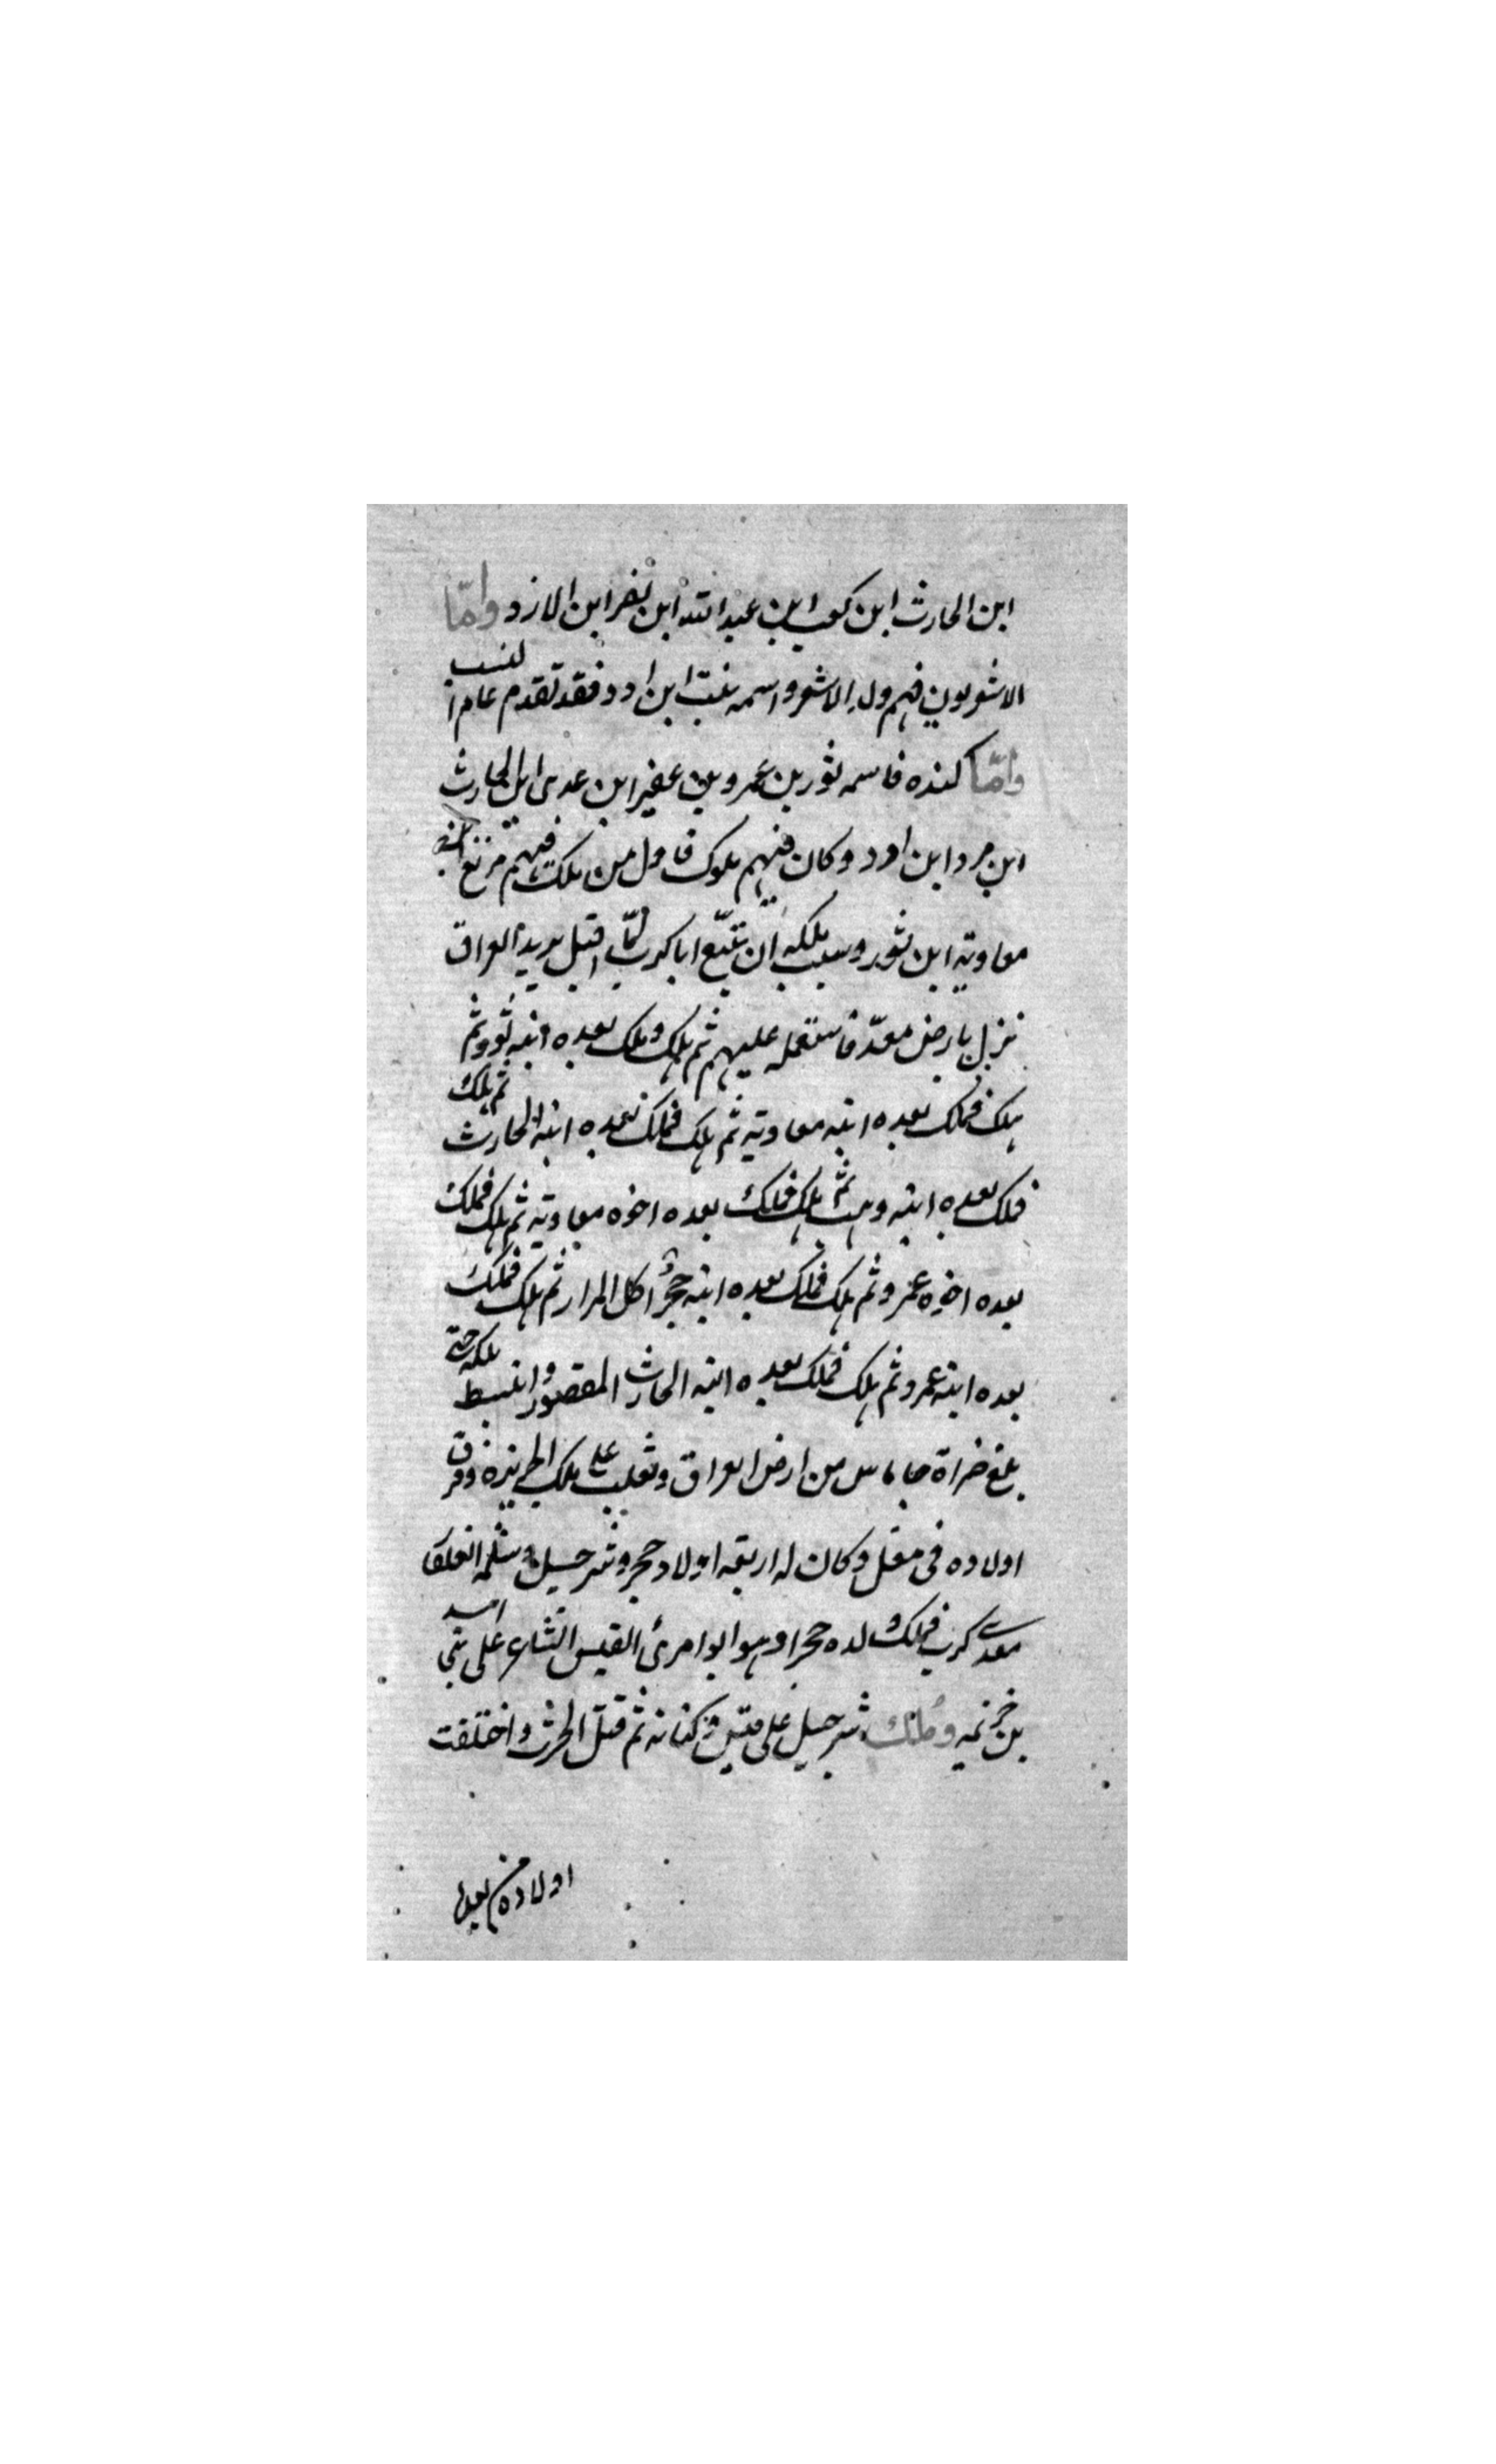 ابن الحارث ابن كعب ابن عبد الله ابن نضر ابن الازد وامّا
الاشعريون فهم ولد الاشعر واسمه نبت ابن ادد فقد تقدم عام النسب
وامّا كنده فاسمه ثور بن عمرو بن عفير ابن عدى ابن الحارث
ابن مرد ابن ادد وكان فيهم ملوك فاول من ملك فيهم مرتع
معاوية ابن ثور وسبب ملكه ان تبّع ابا كرب لمّا اقبل يريد العراق
نزل بارض معدّ فاستعمله عليهم ثم هلك وملك بعده ابنه ثور ثم
هلك فملك بعده ابنه معاوية ثم هلك فملك بعده ابنه الحارث ثم هلك
فملك بعده ابنه وهب ثم هلك فملك بعده اخوه معاوية ثم هلك فملك
بعده اخوه عمرو ثم هلك فملك بعده ابنه حجرُ اكل المرار ثم هلك فملك
بعده ابنه عمرو ثم هلك فملك بعده ابنه الحارث المقصور وانبسط ملكه حتى
بلغ من ارض العراق وتغلب على ملك الحيرة وفرق
اولاده فى وكان له اربعة اولاد حجر وشرحبيل وسلمه
معدى كرب فملك ولده حجرا وهو ابو امرئ القيس الشاعر على بنى اسد
بن خزيمه وملك شرحبيل على قيس وكنانه ثم قتل الحرث واختلفت
اولاده من بعده